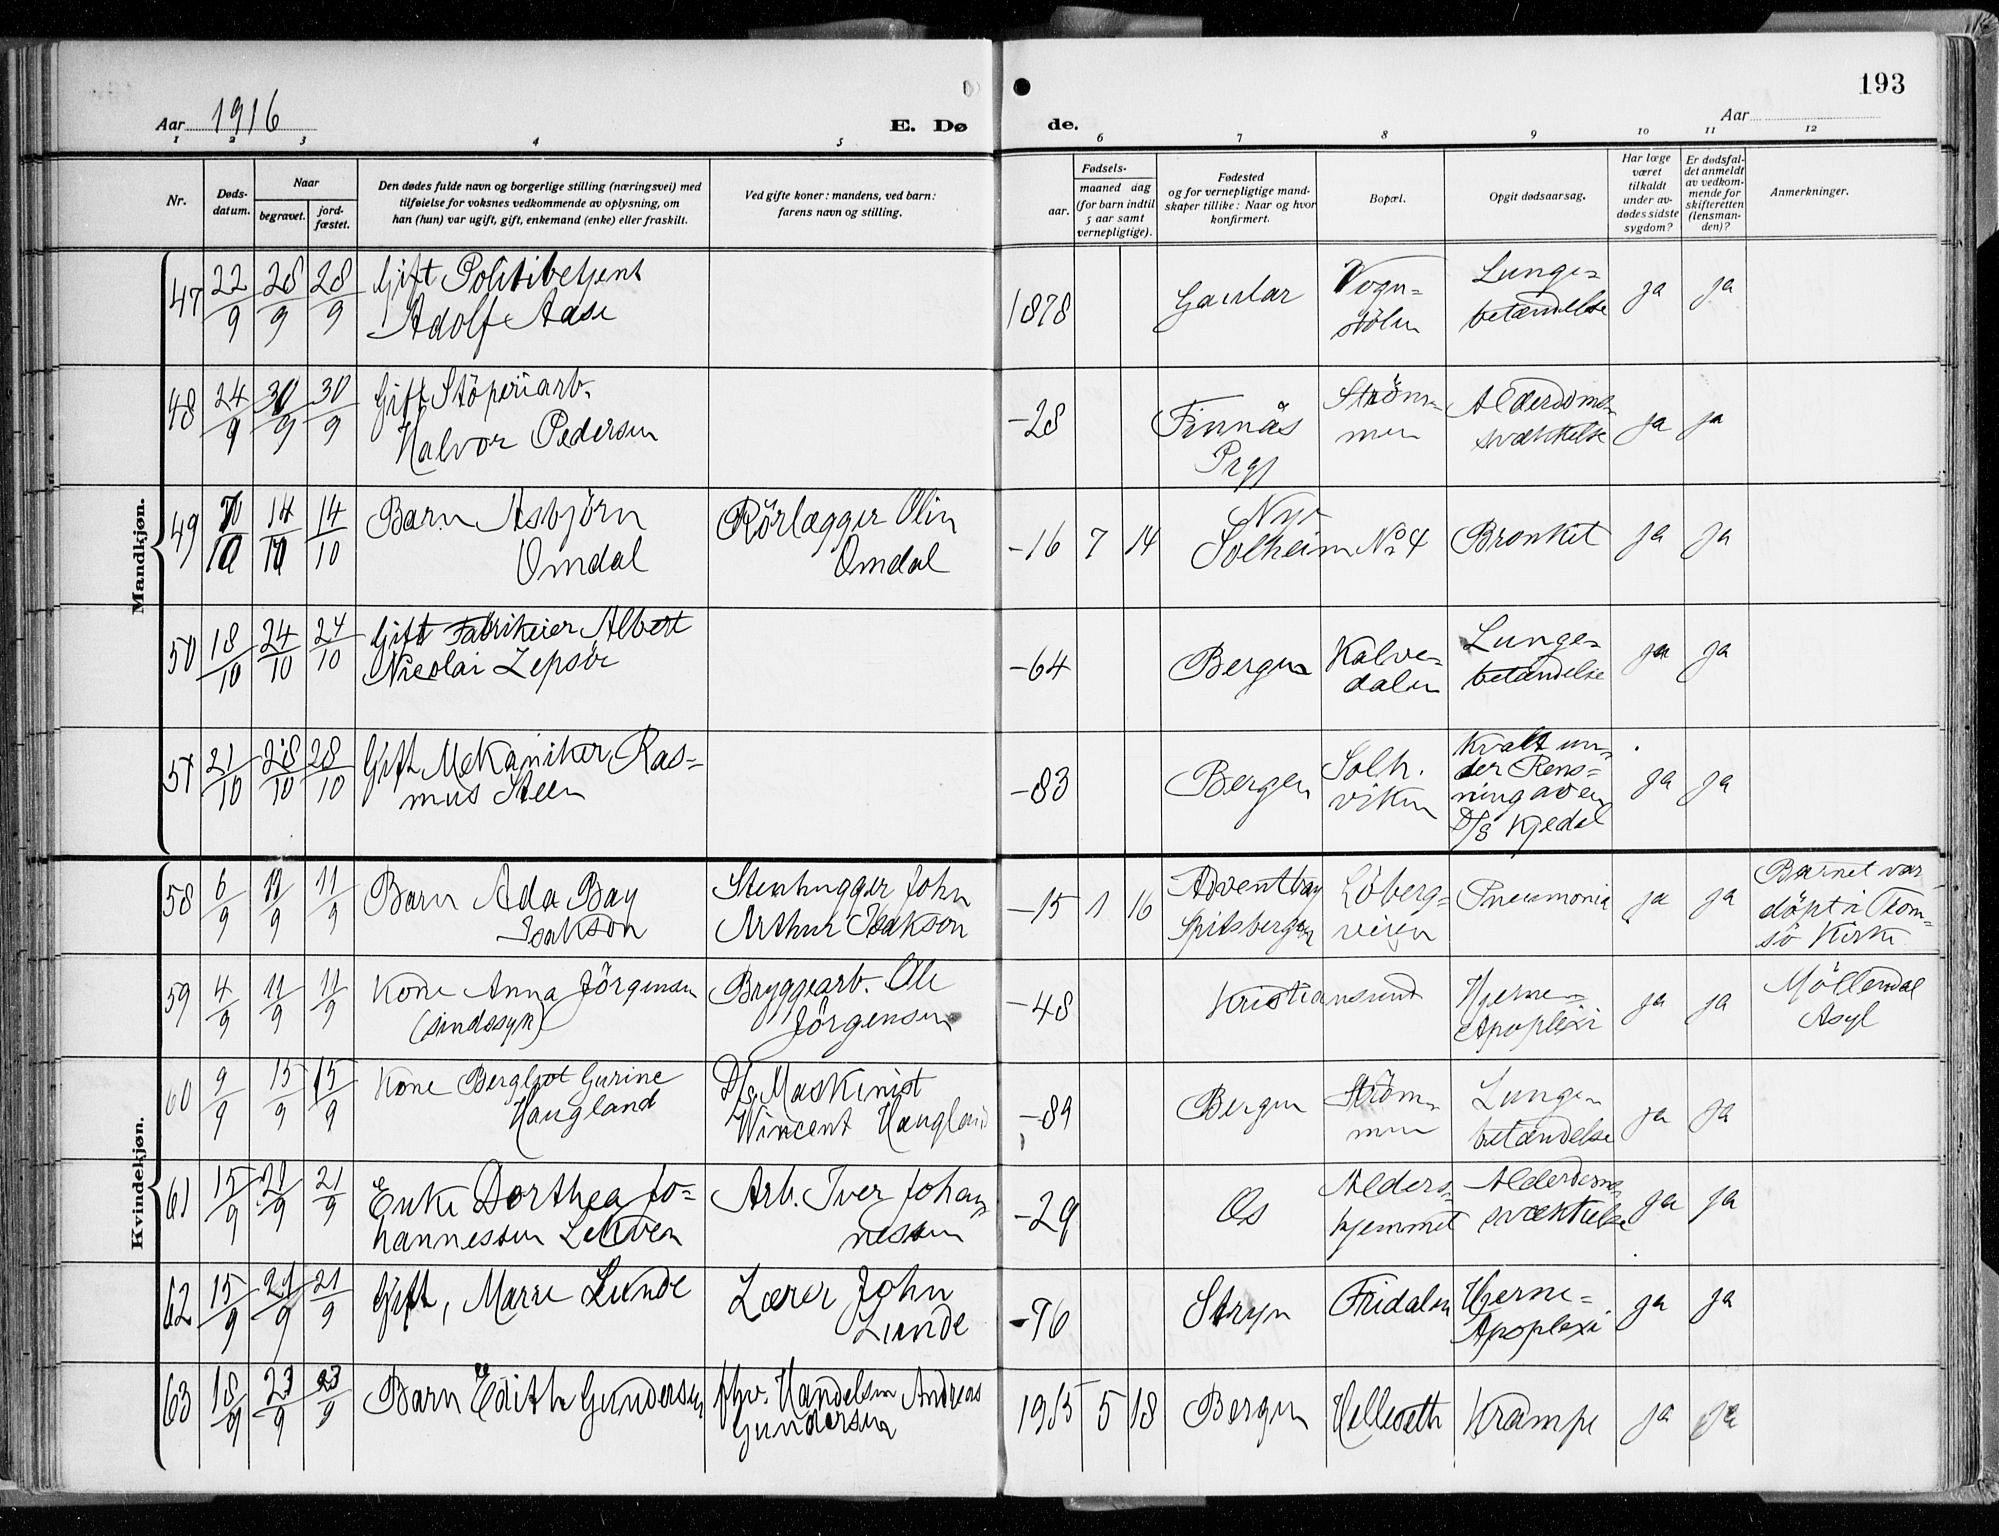 193
Aar 1916
E. Dø
de.
Aar
1 2 3 4 5 6 7 8 9 10 11 12
Nr.
Døds-
datum.
Naar
begravet.
jord-
fæstet.
Den dødes fulde navn og borgerlige stilling (næringsvei) med
tilføielse for voksnes vedkommende av oplysning, om
han (hun) var ugift, gift, enkemand (enke) eller fraskilt.
Ved gifte koner: mandens, ved barn:
farens navn og stilling.
Fødsels-
aar.
maaned dag
(for barn indtil
5 aar samt
vernepligtige).
Fødested
og for vernepligtige mand-
skaper tillike: Naar og hvor
konfirmert.
Bopæl.
Opgit dødsaarsag.
Har læge
været
tilkaldt
under av-
dødes sidste
sygdom?
Er dødsfal-
det anmeldt
av vedkom-
mende for
skifteretten
(lensman-
den)?
Anmerkninger.
Mandkjøn.
47 22/9 28/9 28/9 Gift Politibetjent
Adolf Aase
1878 Gaular Vogn-
stölen
Lunge-
betændelse
ja ja
48 24/9 30/9 30/9 Gift Stöperiarb.
Halvor Pedersen
-28 Finnås
Prgj
Ström-
men
Alderdoms-
svækkelse
ja ja
49 10/10 14/10 14/10 Barn Asbjörn
Omdal
Rörlægger Olin
Omdal
-16 7 14 Nyr
Solheim No 4 Bronkit ja ja
50 18/10 24/10 24/10 Gift Fabrikeier Albert
Nicolai Lepsöe
-64 Bergen Kalve-
dalen
Lunge-
betændelse
ja ja
51 21/10 28/10 28/10 Gift Mekaniker, Ras-
mus Steen
-83 Bergen Solh.
viken
Kvalt un-
der Rens-
ning av en
D/s Kjedel
ja ja
Kvindekjøn.
58 6/9 11/9 11/9 Barn Ada Bay
Isakson
Stenhugger John
Arthur Isakson
-15 1 16 Adventbay
Spitsbergen
Löberg-
veien
Pneumonia ja ja Barnet var
döpt i Trom-
sö Kirke
59 4/9 11/9 11/9 Kone Anna Jörgensen
(sindssyk)
Bryggearb. Ole
Jörgensen
-48 Kristiansund Hjerne-
Apoplexi
ja ja Möllendal
Asyl
60 9/9 15/9 15/9 Kone Bergljot Gurine
Haugland
D/s Maskinist
Wincent Haugland
-89 Bergen Ström-
men
Lunge-
betændelse
ja ja
61 15/9 21/9 21/9 Enke Dorthea Jo-
hannessen Lekven
Arb. Iver Johan-
nessen
-29 Os Alders-
hjemmet
Alderdoms-
svækkelse
ja ja
62 15/9 21/9 21/9 Gift, Marie Lunde
Lærer John
Lunde
-76 Stryn Fridalen Hjerne-
Apoplexi
ja ja
63 18/9 23/9 23/9 Barn Edith Gundersen
fhv. Handelsm Andreas
Gundersen
1915 5 18 Bergen Helleseth Krampe ja ja